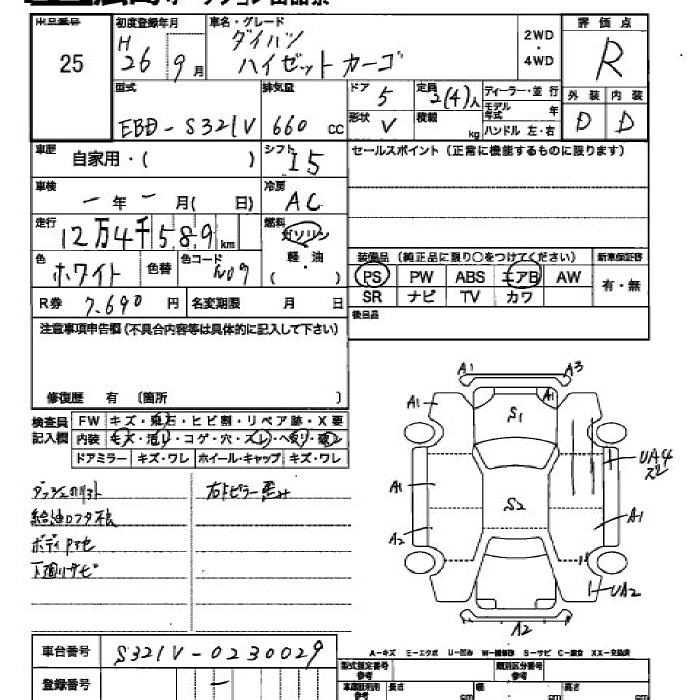 出品番号 初度登録年月 車名・グレード 評価点
25 H 26 9月 ダイハツ ハイゼットカーゴ 2WD・4WD R
型式 排気量 ドア 5 定員 2(4)人 ディーラー・並行 外装 内装
EBD-S321V 660 cc 形状 V 積載 kg モデル年式 年 D D
ハンドル 左・右
車歴 自家用・( ) シフト I5 セールスポイント(正常に機能するものに限ります)
車検 一年 一月( 日) 冷房 AC
走行 12万4千589km 燃料 ガソリン 軽・油 ( )
色 ホワイト 色替 色コード W09
装備品(純正品に限り○をつけてください) 新車保証書
PS PW ABS エアB AW 有・無
SR ナビ TV カワ
R券 7,690円 名変期限 月 日 後日品
注意事項申告欄(不具合内容等は具体的に記入して下さい)
修復歴 有 〔箇所 〕
検査員記入欄 FW キズ・飛石・ヒビ割・リペア跡・X要
内装 キズ・汚レ・コゲ・穴・スレ・ヘタリ・
ドアミラー キズ・ワレ ホイール・キャップ キズ・ワレ
給油口フタ
ボディ
下廻りサビ
A1 A3
A1 A1
S1
UA4
スレ
A1 S2 A1
A2
UA2
A2
車台番号 S321V-0230029
A-キズ E-エクボ U-凹み W-補修跡 S-サビ C-腐食 XX-交換済
登録番号 -
型式指定番号 参考 類別区分番号 参考
長さ cm 幅 cm 高さ cm